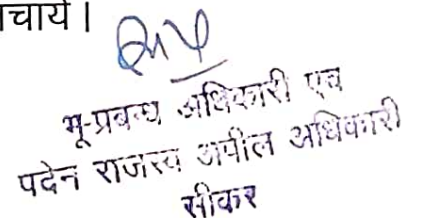 चाये ।
भू-प्रबन्ध अधिकारी एवं
पदेन राजस्व अपील अधिकारी
सीकर